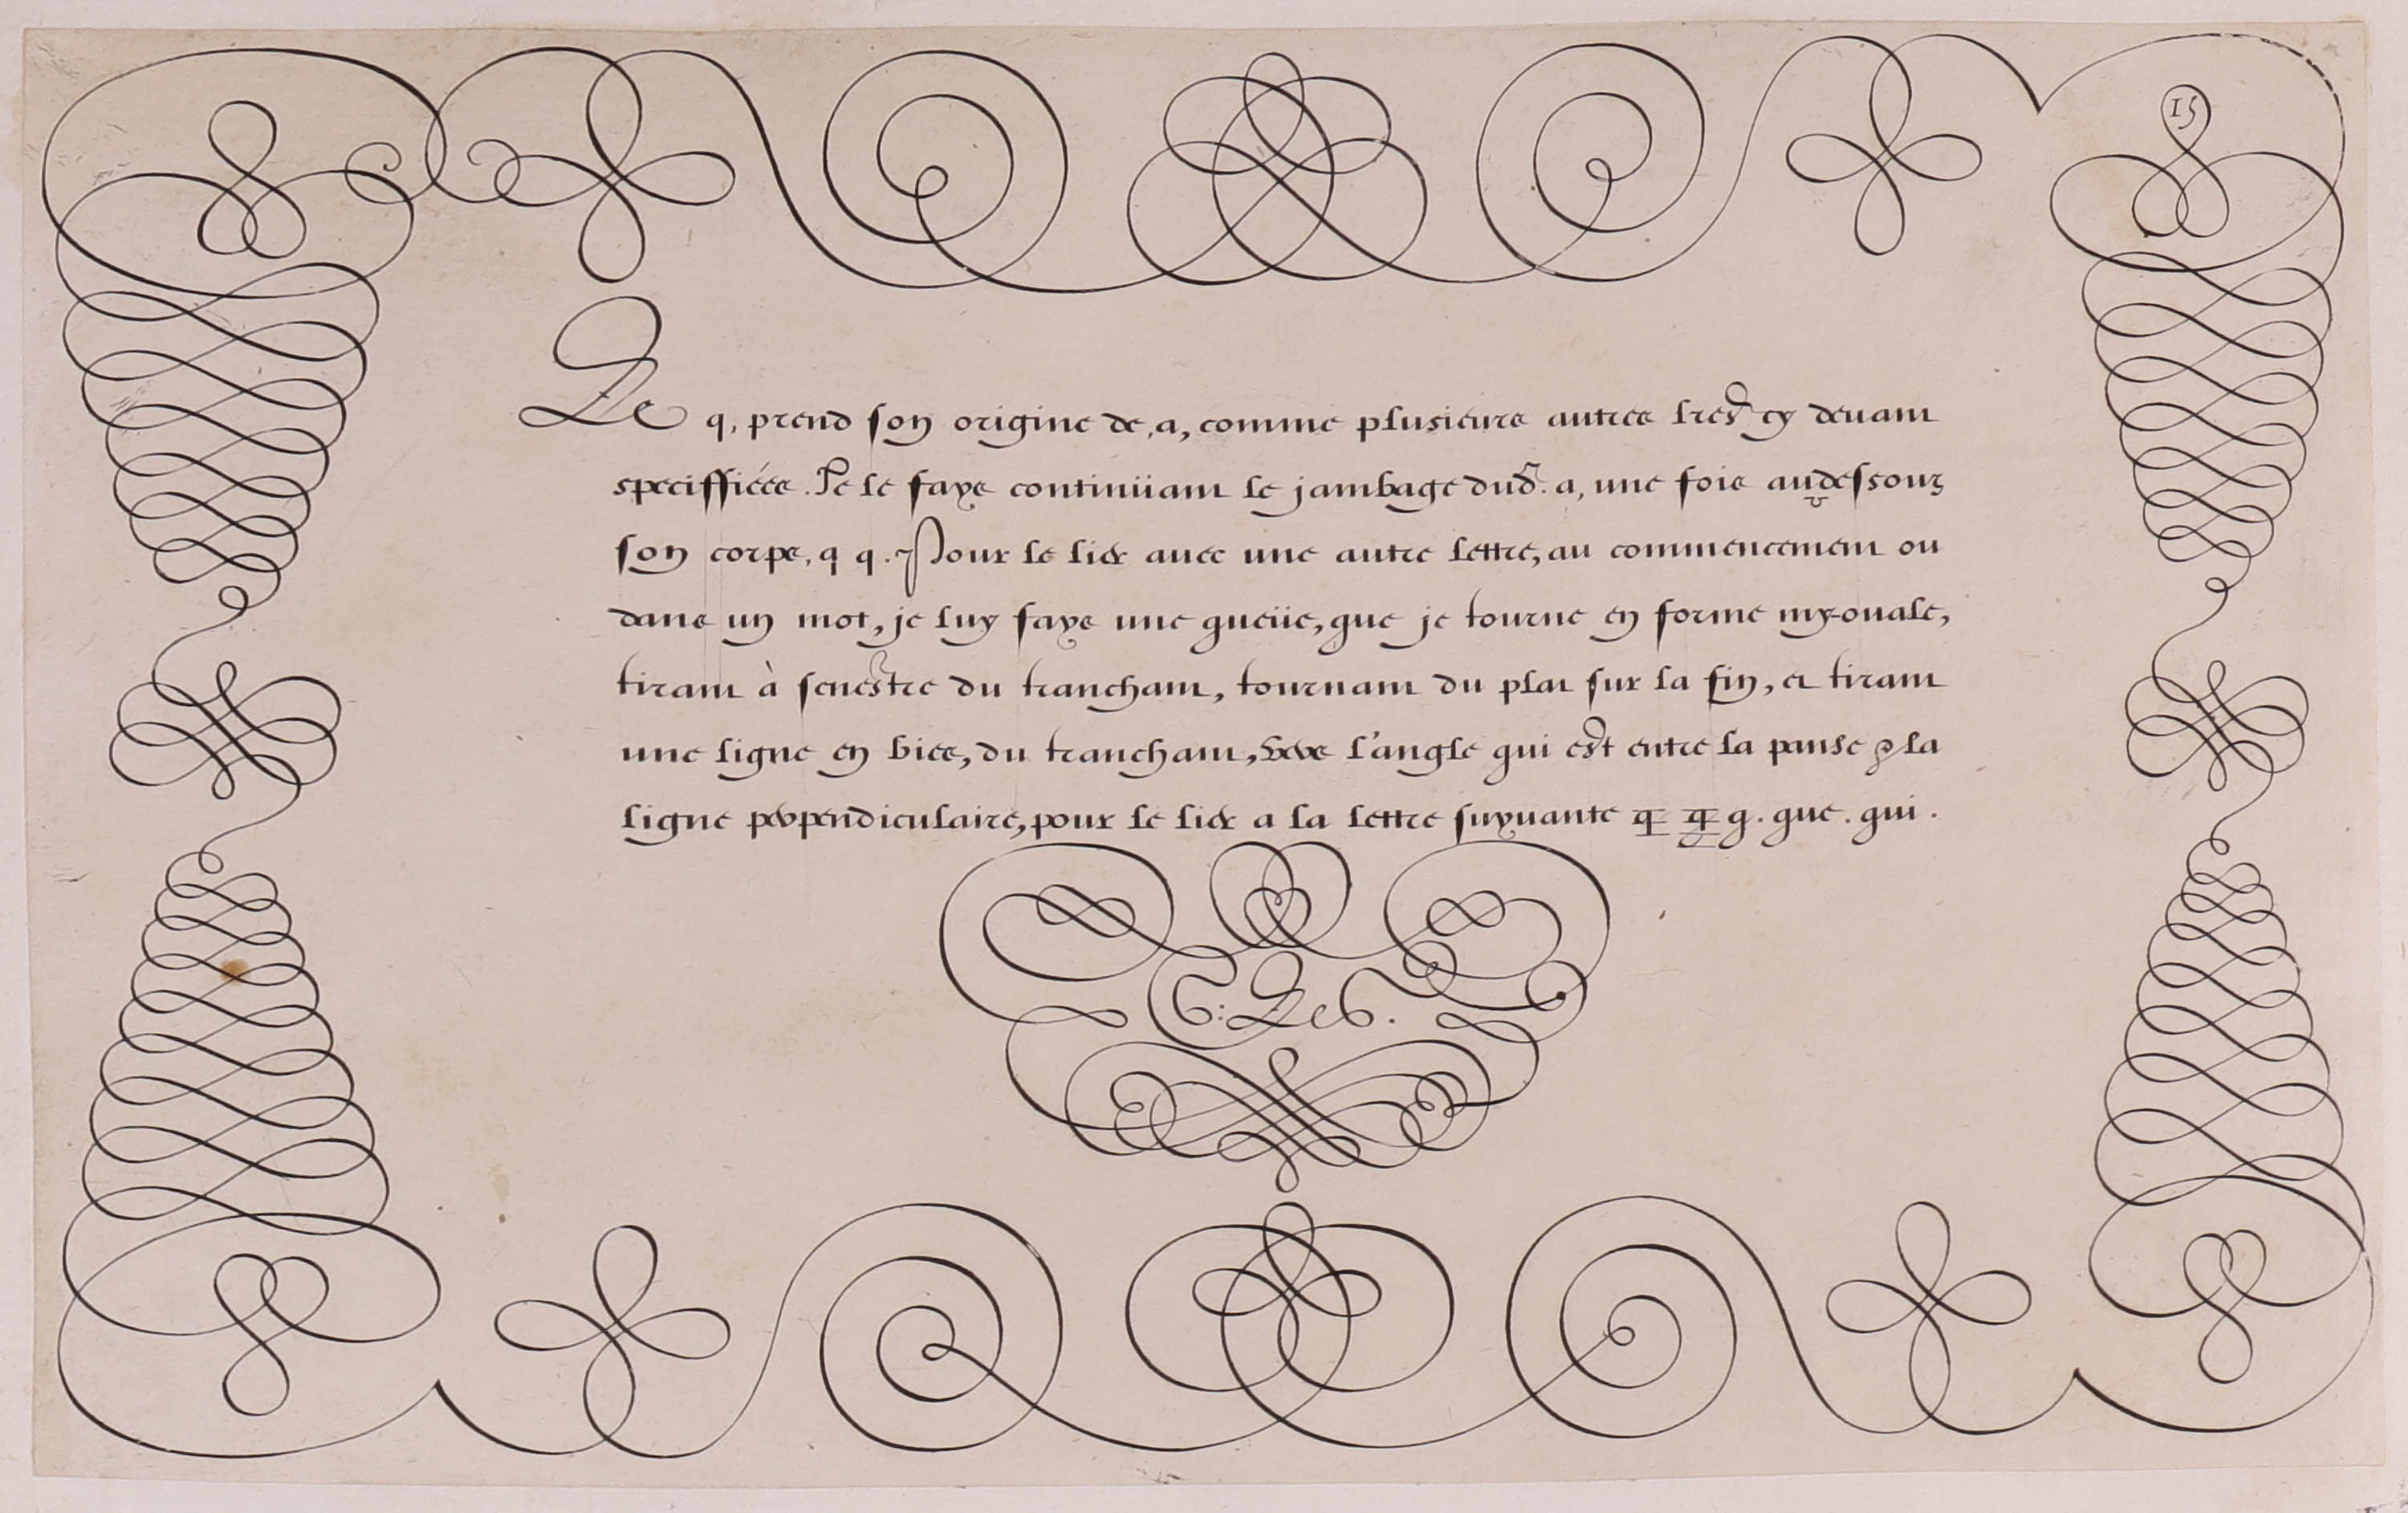 15
Le q, prend son origine de, a, comme plusieurs autres lres cy devant
speciffiées. Je le fays continüant le jambage dud. a, une fois audessouz
son corps, q q. Pour le lier avec une autre lettre, au commencement ou
dans un mot, je luy fays une queüe, que je tourne en forme my-ovale,
tirant à senestre du tranchant, tournant du plat sur la fin, et tirant
une ligne en bies, du tranchant, vers l'angle qui est entre la panse & la
ligne perpendiculaire, pour le lier a la lettre suyvante q q q. que. qui.